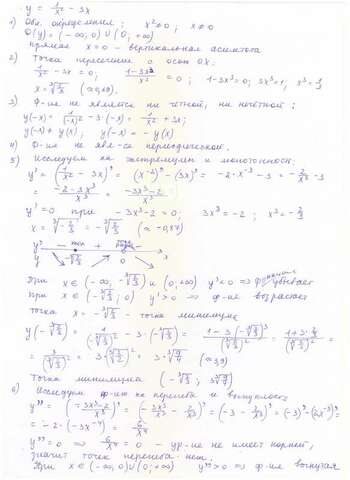 y = 1/x² - 3x
1) Обл. определения: x² ≠ 0; x ≠ 0
D(y) = (-∞; 0) ∪ (0; +∞)
прямая x = 0 - вертикальная асимптота
2) Точка пересечения с осью OX:
1/x² - 3x = 0; (1-3x³)/x² = 0; 1-3x³ = 0; 3x³ = 1; x³ = 1/3
x = ∛(1/3) (≈ 0,69).
3) Ф-ия не является ни чётной, ни нечётной:
y(-x) = 1/(-x)² - 3·(-x) = 1/x² + 3x;
y(-x) ≠ y(x); y(-x) ≠ -y(x)
4) Ф-ия не явл-ся периодической.
5) Исследуем на экстремумы и монотонность:
y' = (1/x² - 3x)' = (x⁻²)' - (3x)' = -2·x⁻³ - 3 = -2/x³ - 3
= (-2-3x³)/x³ = (-3x³-2)/x³
y' = 0 при -3x³-2 = 0; 3x³ = -2; x³ = -2/3
x = ∛(-2/3) = -∛(2/3) (≈ -0,87)
y' - + - x
y -∛(2/3) 0
При x ∈ (-∞; -∛(2/3)) и (0; +∞) y' < 0 ⇒ убывает
при x ∈ (-∛(2/3); 0) y' > 0 ⇒ ф-ия возрастает
Точка x = -∛(2/3) - точка минимума
y(-∛(2/3)) = 1/(-∛(2/3))² - 3·(-∛(2/3)) = (1-3(-∛(2/3))³)/(∛(2/3))² = (1+3·2/3)/(∛(2/3))² =
= 3/(∛(2/3))² = 3(∛(3/2))² = 3·∛(9/4) (≈ 3,9)
Точка минимума (-∛(2/3); 3∛(9/4))
6) Исследуем ф-ию на перегиба и выпуклость
y'' = ((-3x³-2)/x³)' = (-3x³/x³ - 2/x³)' = (-3 - 2/x³)' = (-3)' - (2x⁻³)' =
= -2·(-3x⁻⁴) = 6/x⁴
y'' = 0 ⇒ 6/x⁴ = 0 - ур-ие не имеет корней,
значит точек перегиба нет.
При x ∈ (-∞; 0) ∪ (0; +∞) y'' > 0 ⇒ ф-ия вогнутая